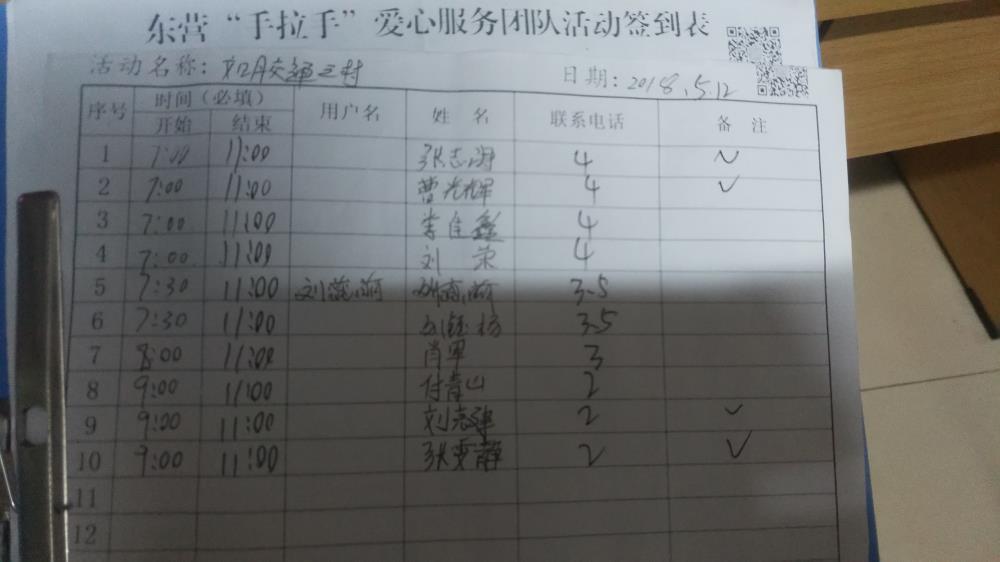 东营“手拉手”爱心服务团队活动签到表
活动名称： 三村 日期：2018.5.12
序号 时间（必填） 用户名 姓名 联系电话 备注
开始 结束
1 7:00 11:00 张志 4 ✓
2 7:00 11:00 曹光辉 4 ✓
3 7:00 11:00 李佳鑫 4
4 7:00 11:00 刘荣 4
5 7:30 11:00 3.5
6 7:30 11:00 3.5
7 8:00 11:00 肖军 3
8 9:00 11:00 付青山 2
9 9:00 11:00 刘志建 2 ✓
10 9:00 11:00 张雯静 2 ✓
11
12